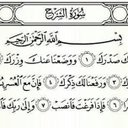 سُورَةُ الشَّرْحِ
بِسْمِ اللَّهِ الرَّحْمَٰنِ الرَّحِيمِ
صَدْرَكَ ١ وَوَضَعْنَا عَنكَ
وَرَفَعْنَا لَكَ ذِكْرَكَ ٤ فَإِنَّ مَعَ الْعُسْرِ
فَإِذَا فَرَغْتَ فَانصَبْ ٧ وَإِلَىٰ رَبِّكَ